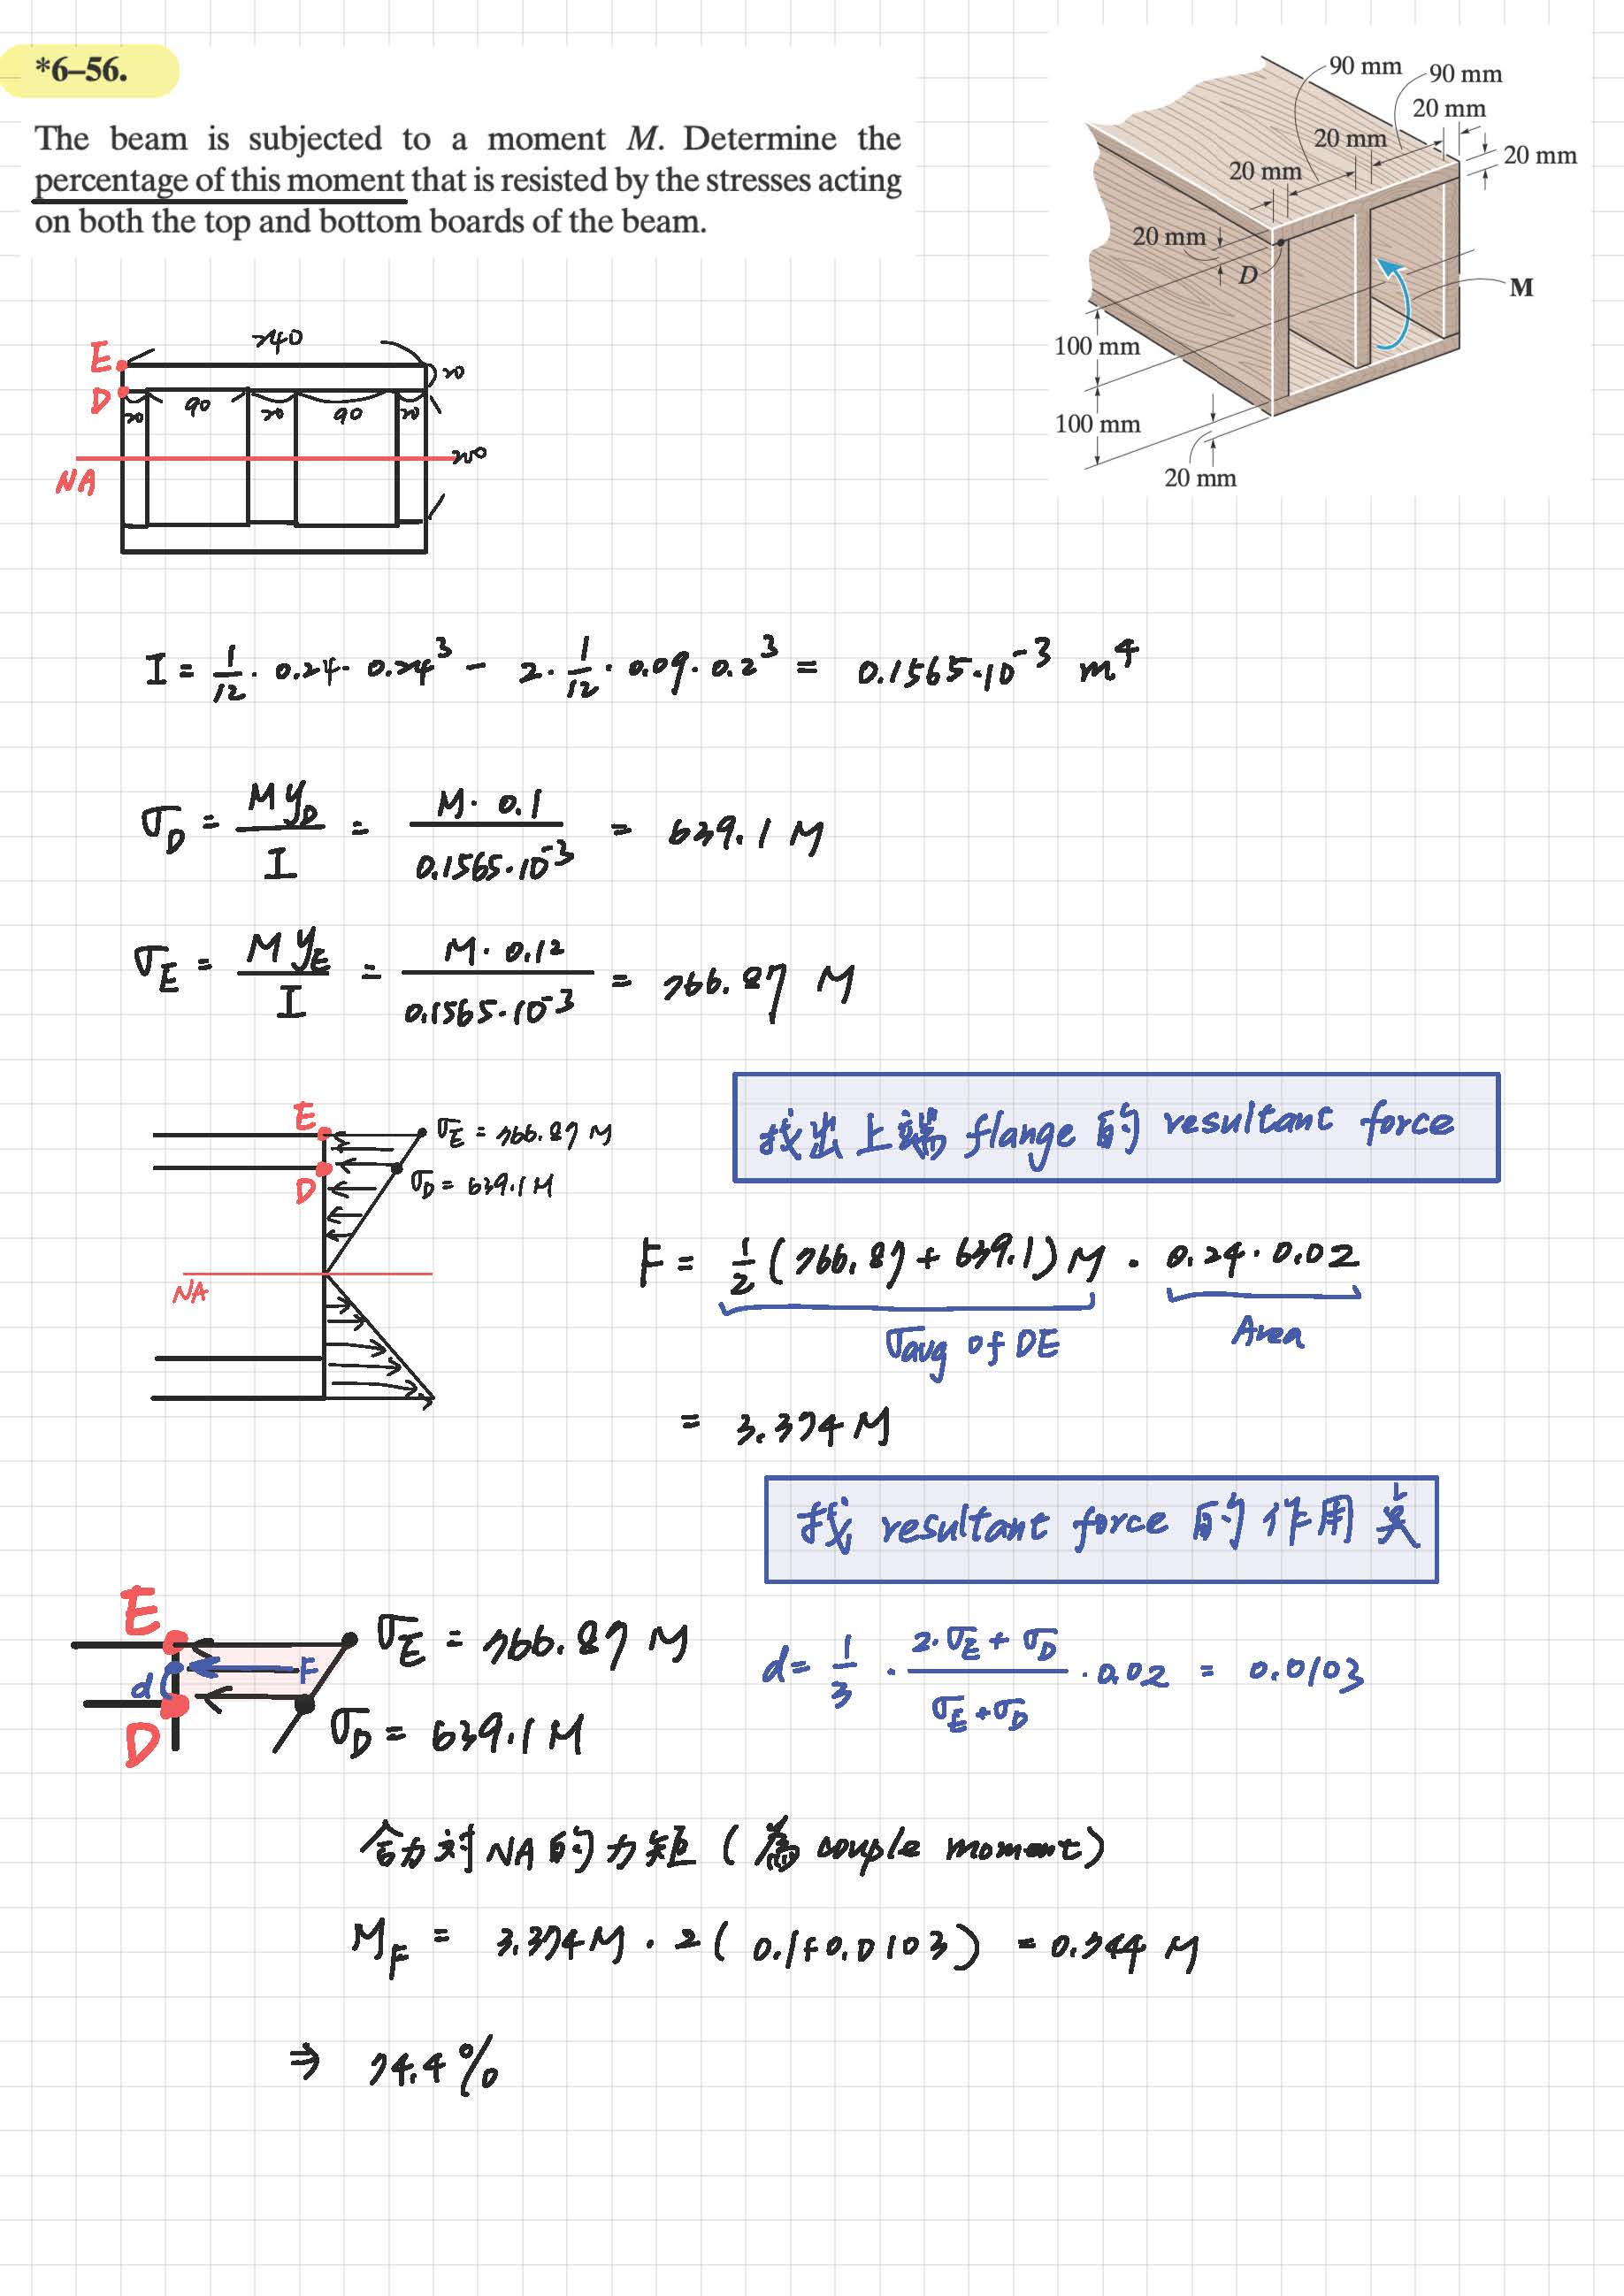 *6–56.
The beam is subjected to a moment M. Determine the
percentage of this moment that is resisted by the stresses acting
on both the top and bottom boards of the beam.
90 mm
90 mm
20 mm
20 mm
20 mm
20 mm
20 mm
D
M
100 mm
100 mm
20 mm
E
240
20
D
20
90
20
90
20
200
NA
I = 1/12 · 0.24 · 0.24³ − 2 · 1/12 · 0.09 · 0.2³ = 0.1565·10⁻³ m⁴
σ_D = M y_D / I = M · 0.1 / 0.1565·10⁻³ = 639.1 M
σ_E = M y_E / I = M · 0.12 / 0.1565·10⁻³ = 766.87 M
找出上端 flange 的 resultant force
E
σ_E = 766.87 M
D
σ_D = 639.1 M
NA
F = 1/2 (766.87 + 639.1) M · 0.24 · 0.02
σavg of DE
Area
= 3.374 M
找 resultant force 的作用点
E
σ_E = 766.87 M
d
F
D
σ_D = 639.1 M
d = 1/3 · (2·σ_E + σ_D) / (σ_E + σ_D) · 0.02 = 0.0103
合力对 NA 的力矩 (為 couple moment)
M_F = 3.374 M · 2 ( 0.1+0.0103 ) = 0.744 M
⇒ 74.4 %